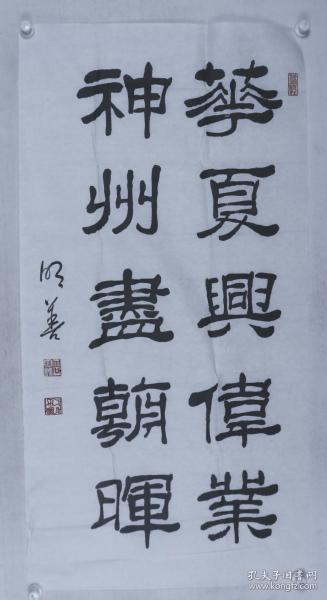 華夏興偉業
神州盡朝暉
明善
孔夫子旧书网
www.kongfz.com